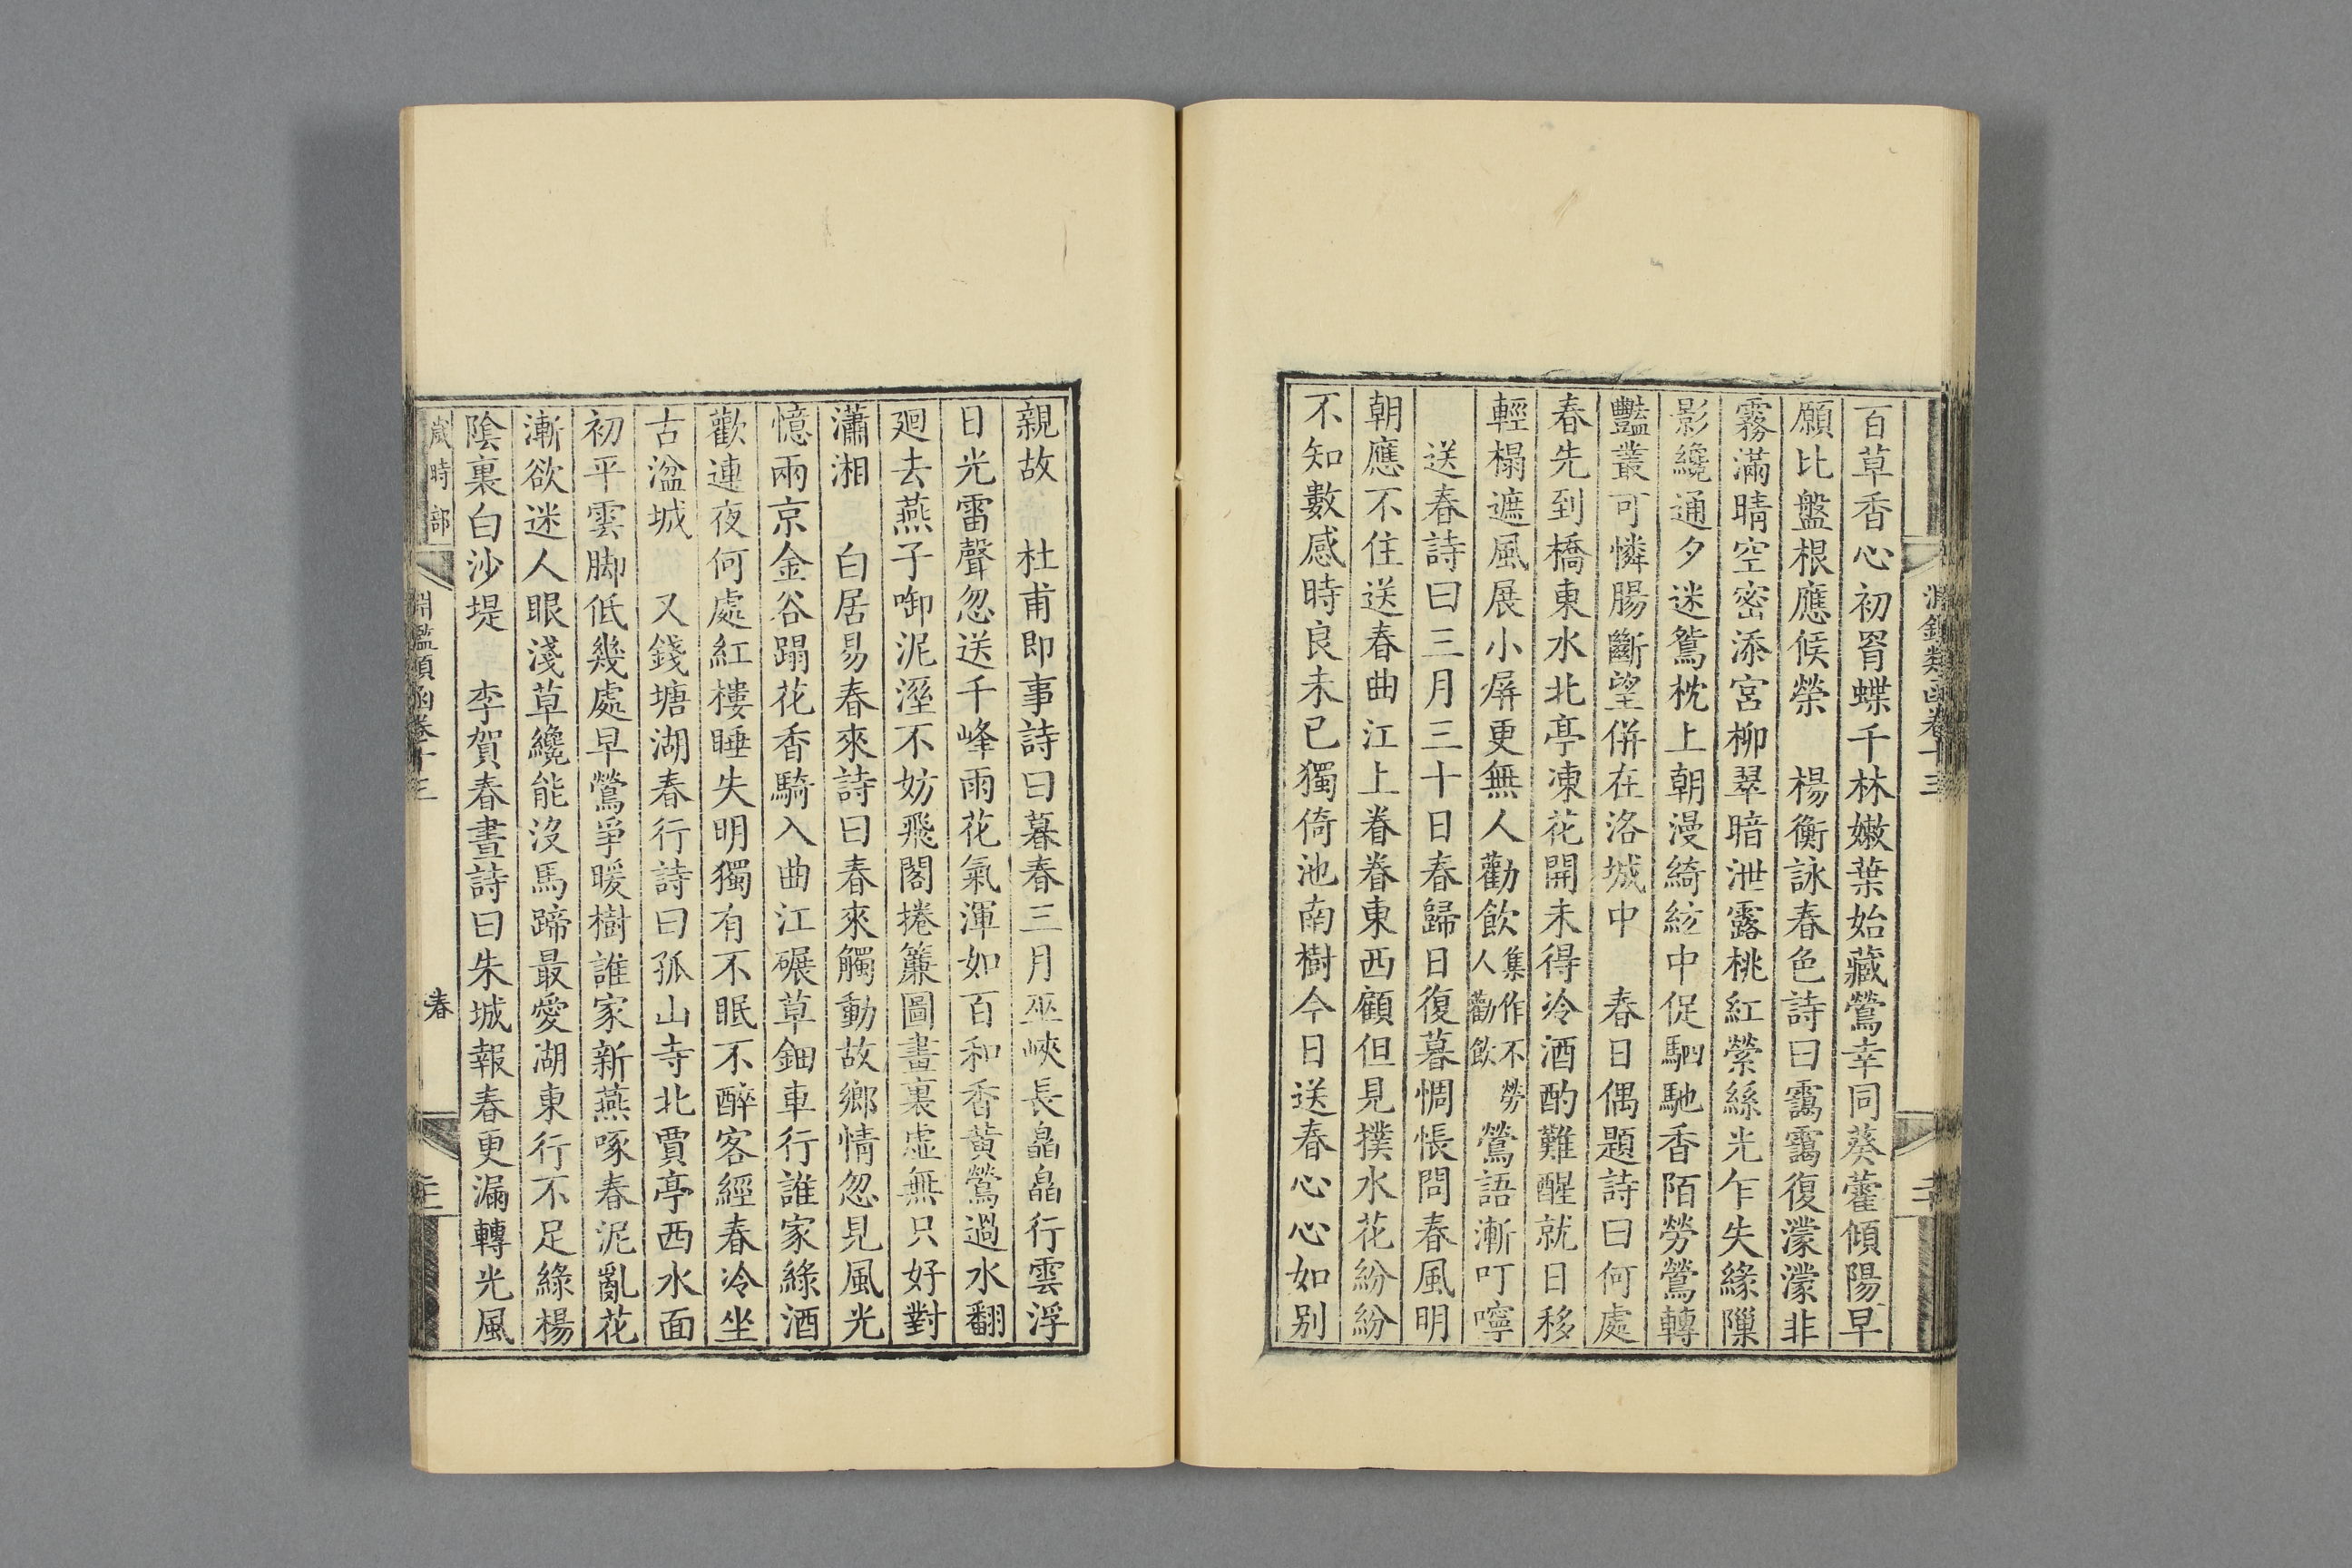 淵鑑類函卷十三
百草香心初罥蝶千林嫩葉始藏鶯幸同葵藿傾陽早
願比盤根應候榮　楊衡詠春色詩曰靄靄復濛濛非
霧滿晴空密添宮柳翠暗泄露桃紅縈絲光乍失緣隟
影纔通夕迷鴛枕上朝漫綺紘中促駟馳香陌勞鶯轉
豔叢可憐腸斷望併在洛城中　春日偶題詩曰何處
春先到橋東水北亭凍花開未得冷酒酌難醒就日移
輕榻遮風展小屏更無人勸飲集作不勞人勸飲鶯語漸叮嚀
送春詩曰三月三十日春歸日復暮惆悵問春風明
朝應不住送春曲江上眷眷東西顧但見撲水花紛紛
不知數感時良未已獨倚池南樹今日送春心心如别
親故　杜甫即事詩曰暮春三月巫峽長皛皛行雲浮
日光雷聲忽送千峰雨花氣渾如百和香黄鶯過水翻
廻去燕子啣泥溼不妨飛閣捲簾圖畫裏虛無只好對
瀟湘　白居易春來詩曰春來觸動故鄉情忽見風光
憶兩京金谷蹋花香騎入曲江碾草鈿車行誰家綠酒
歡連夜何處紅樓睡失明獨有不眠不醉客經春冷坐
古湓城　又錢塘湖春行詩曰孤山寺北賈亭西水面
初平雲脚低幾處早鶯爭暖樹誰家新燕啄春泥亂花
漸欲迷人眼淺草纔能沒馬蹄最愛湖東行不足綠楊
陰裏白沙堤　李賀春晝詩曰朱城報春更漏轉光風
歲時部　淵鑑類函卷十三　春